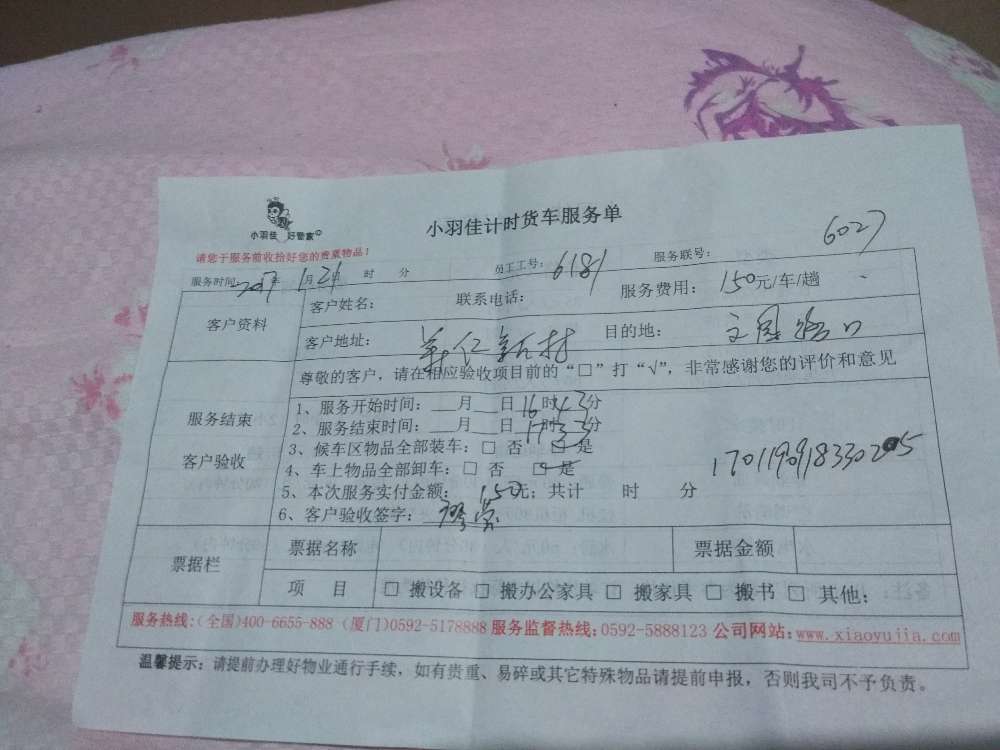 小羽佳 好管家
小羽佳计时货车服务单
请您于服务前收拾好您的贵重物品！
服务时间：2017年1月21日 时 分 员工工号：6181 服务联号：6027
客户资料
客户姓名： 联系电话： 服务费用：150元/车/趟
客户地址：新村 目的地：路口
尊敬的客户，请在相应验收项目前的“□”打“√”，非常感谢您的评价和意见
服务结束
客户验收
1、服务开始时间：___月___日16时43分
2、服务结束时间：___月___日17时33分
3、候车区物品全部装车：□ 否 □ 是
4、车上物品全部卸车：□ 否 □ 是
5、本次服务实付金额：150元；共计 时 分
6、客户验收签字：
票据栏
票据名称 票据金额
项 目 □ 搬设备 □ 搬办公家具 □ 搬家具 □ 搬书 □ 其他：
服务热线:(全国)400-6655-888 (厦门)0592-5178888 服务监督热线:0592-5888123 公司网站:www.xiaoyujia.com
温馨提示：请提前办理好物业通行手续，如有贵重、易碎或其它特殊物品请提前申报，否则我司不予负责。